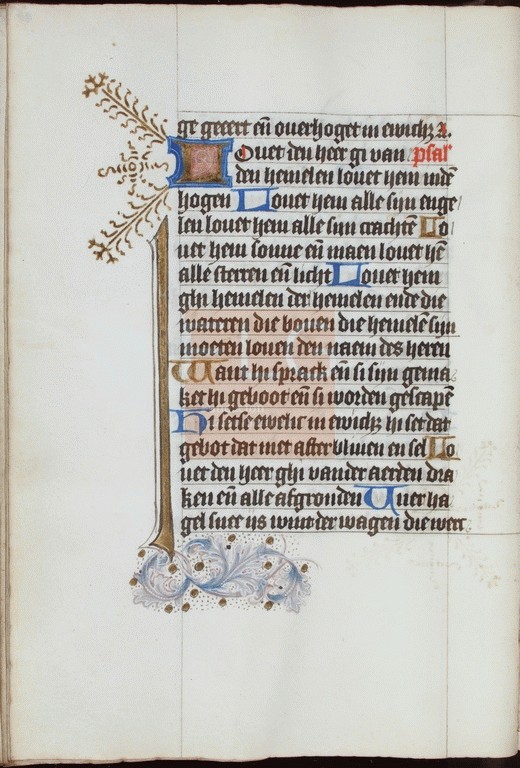 ge geeert en̄ ouerhoget in ewich₃ A.
Ouet den heer gi van psal
den hemelen louet hem indē
hogen Louet hem alle sijn enge
len louet hem alle sijn crachtē Lo
uet hem sonne en̄ maen louet hē
alle sterren en̄ licht Louet hem
ghi hemelen der hemelen ende die
wateren die bouen die hemelē sijn
moeten louen den naem des heren
Want hi sprack en̄ si sijn gema
ket hi geboot en̄ si worden gescapē
Hi setse ewelic in ewich₃ hi set dat
gebot dat niet after bliuen en sel Lo
uet den heer ghi vander aerden dra
ken en̄ alle afgronden Vuer ha
gel snee ijs wint der wagen die werc